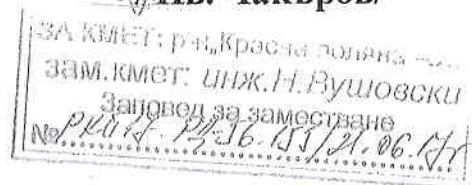 Ив. Чакъров/
ЗА КМЕТ: р-н „Красна поляна
ЗАМ.КМЕТ: инж.Н.Вушовски
Заповед за заместване
№ РКП17- -36-155/21.06.17г